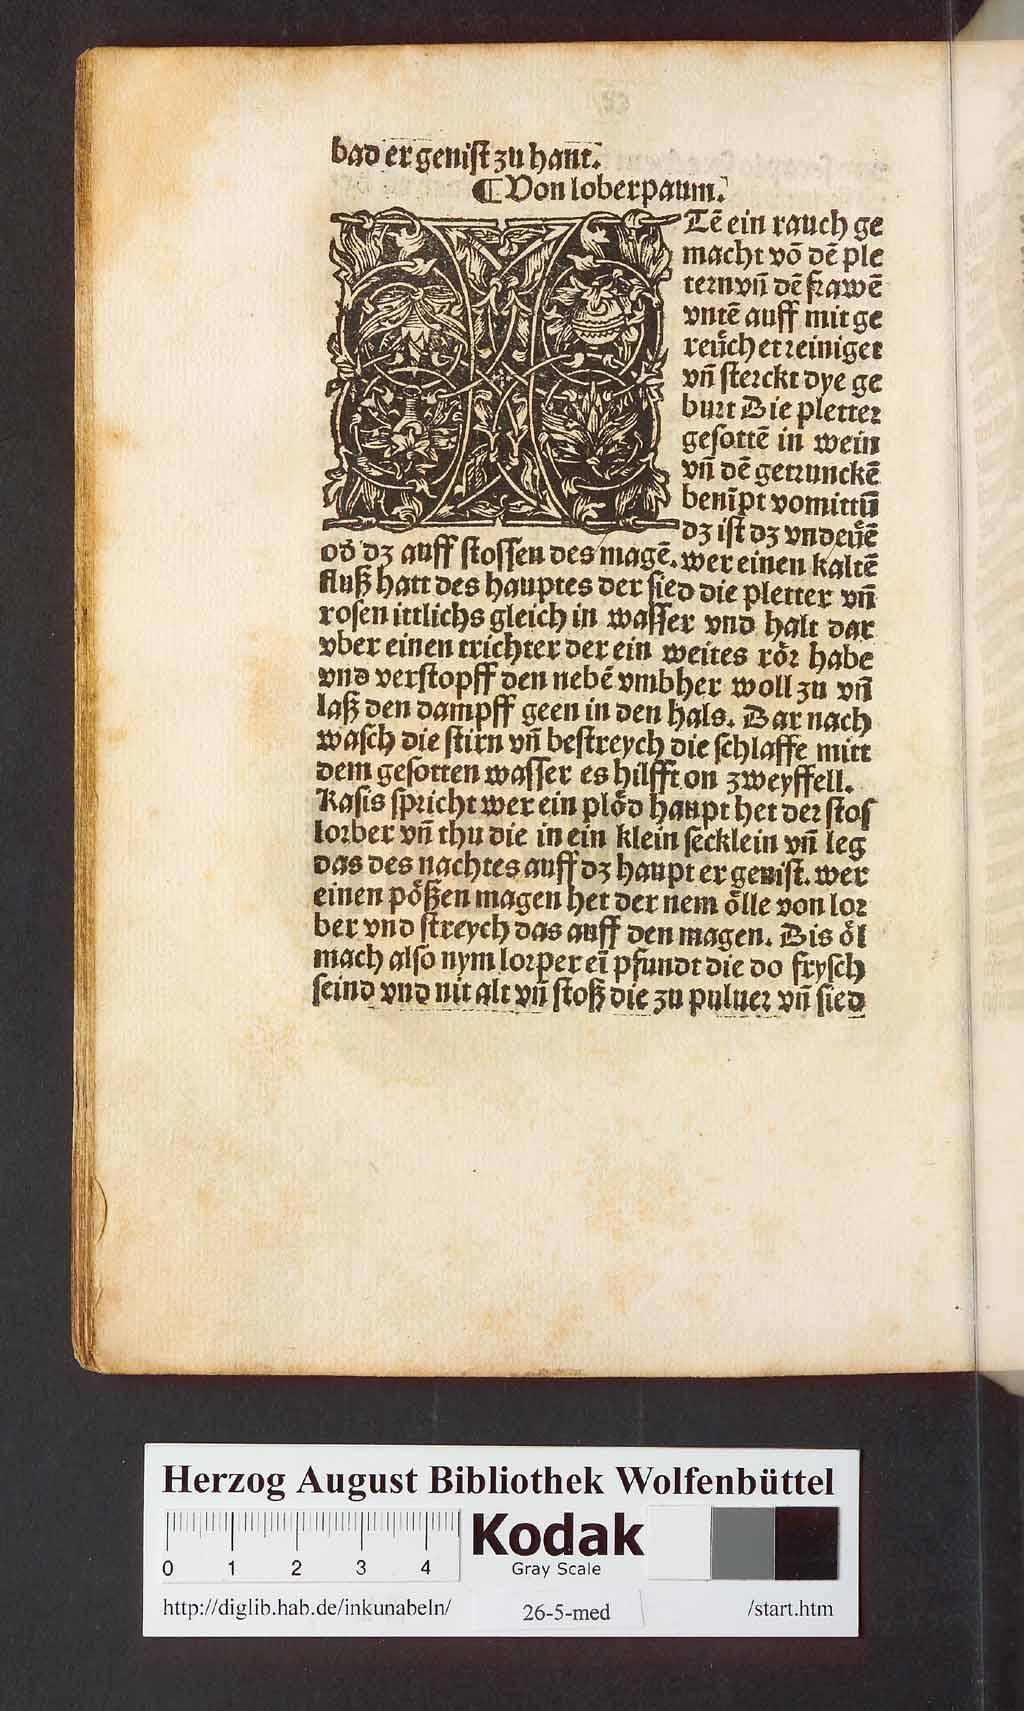 bad er genist zu hant.
¶ Von loberpaum.
ITē ein rauch ge
macht vō dē ple
tern vn̄ dē frawē
vntē auff mit ge
reuͤchet reiniget
vn̄ sterckt dye ge
burt Die pletter
gesottē in wein
vn̄ dē getrunckē
benīpt vomittū
dz ist dz vndeuͤē
od' dz auff stossen des magē. wer einen kaltē
fluß hatt des hauptes der sied die pletter vn̄
rosen ittlichs gleich in wasser vnd halt dar
vber einen trichter der ein weites roͤr habe
vnd verstopff den nebē vmbher woll zu vn̄
laß den dampff geen in den hals. Dar nach
wasch die stirn vn̄ bestreych die schlaffe mitt
dem gesotten wasser es hilfft on zweyffell.
Rasis spricht wer ein ploͤd haupt het der stos
lorber vn̄ thu die in ein klein secklein vn̄ leg
das des nachtes auff dz haupt er genist. wer
einen poͤßen magen het der nem oͤlle von lor
ber vnd streych das auff den magen. Dis oͤl
mach also nym lorper eī pfundt die do frysch
seind vnd nit alt vn̄ stoß die zu puluer vn̄ sied
Herzog August Bibliothek Wolfenbüttel
0 1 2 3 4
Kodak
Gray Scale
http://diglib.hab.de/inkunabeln/ 26-5-med /start.htm